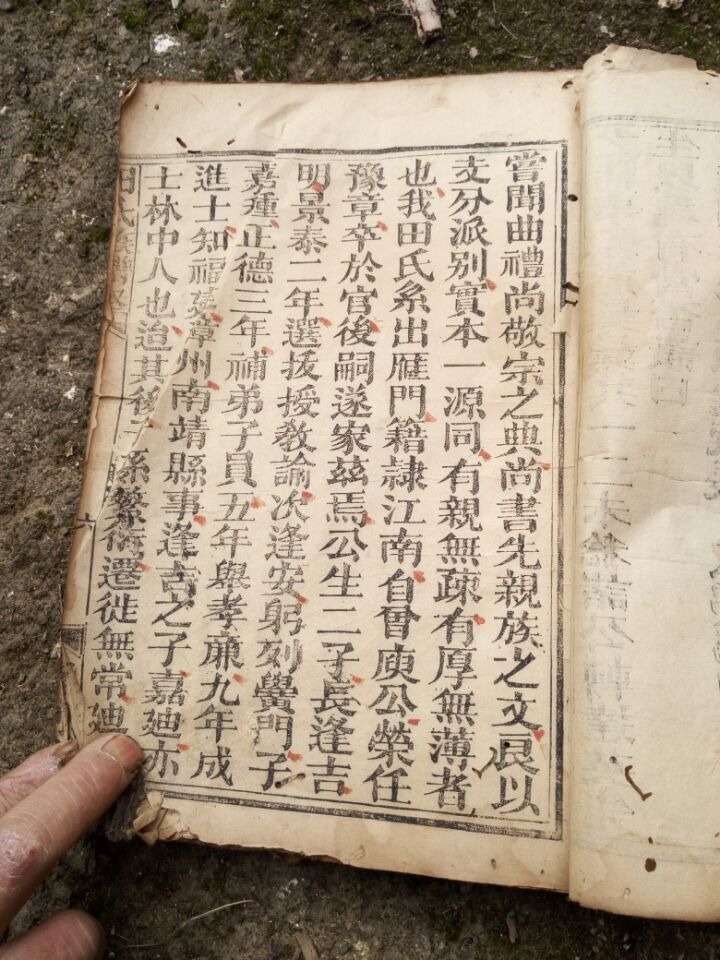 嘗聞曲禮尚敬宗之典尚書先親族之文良以
支分派別實本一源同有親無疎有厚無薄者
也我田氏系出雁門籍隸江南自曾庾公榮任
豫章卒於官後嗣遂家兹焉公生二子長逢吉
明景泰二年選拔授教諭次逢安躬列黌門子
嘉種正德三年補弟子員五年舉孝廉九年成
進士知福建漳州南靖縣事逢吉之子嘉廸亦
士林中人也迨其後子孫繁衍遷徙無常廸
田氏
六